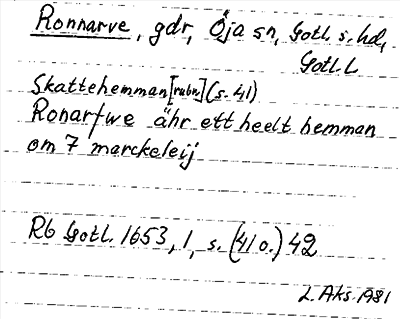 Ronnarve, gdr, Öja sn, Gotl. s. hd,
Gotl. L
Skattehemman [rubr.] (s. 41)
Ronarfwe ähr ett heelt hemman
om 7 marckeleij
Rb Gotl. 1653, 1, s. (41 o.) 42
L. Aks. 1981